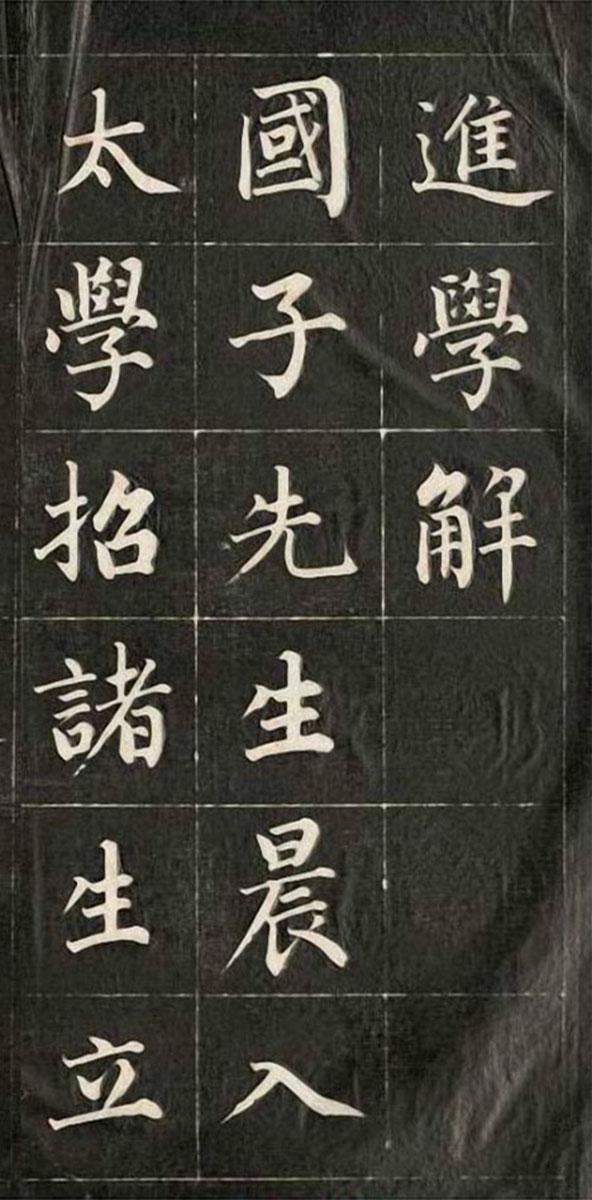 進學解
國子先生晨入
太學招諸生立